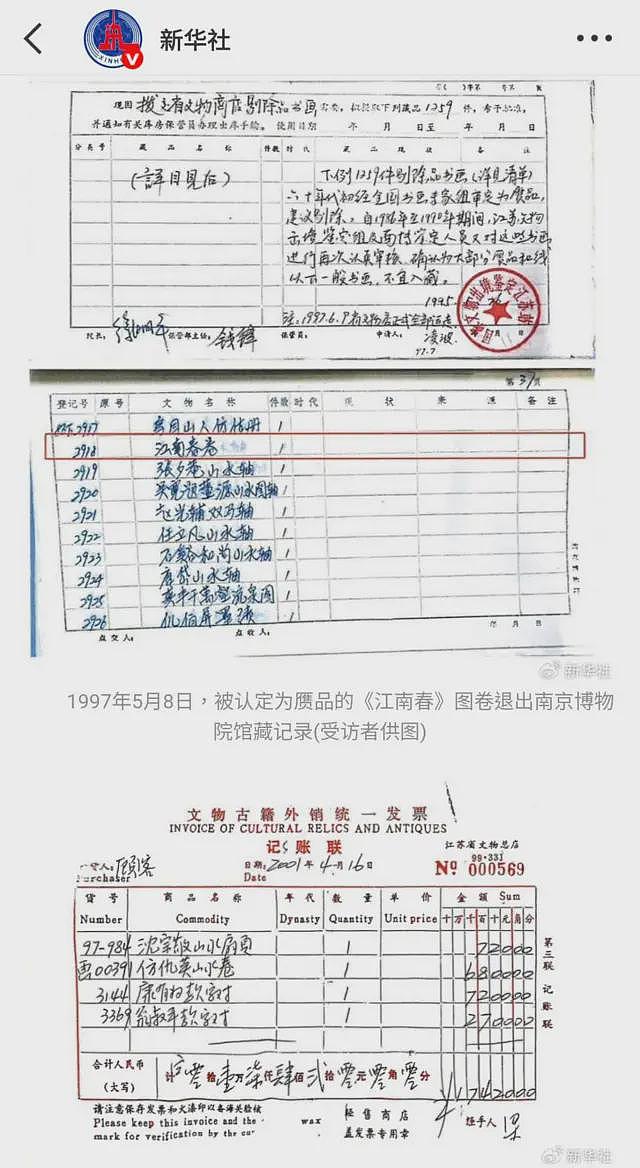 新华社
XINH
现因 拨交省文物商店剔除品书画 需要,拟提取下列藏品 1259 件,希予批准,
并通知有关库房保管员办理出库手续。 使用日期 年 月 日至 年 月 日
分类号 藏品名称 件数 时代 藏品现状 备注
(详目见后)
下例1259件剔除品书画(详见清单)
六十年代初经全国书画专家组审定为赝品,
建议剔除。自1986年至1990年期间,江苏文物
出境鉴定组及南博鉴定人员又对这些书画
进行再次认真审核,确认为大部分赝品和线
以下一般书画,不宜入藏。
1995
注:1997.6.
院长: 徐湖平 保管部主任: 钱锋 保管员: 申请人: 凌波
97.7
第37页
登记号 原号 文物名称 件数 时代 现状 来源 备注
2917 1
2918 江南春卷 1
2919 张夕庵山水轴 1
2920 吴宽 董源山水图轴 1
2921 赵光辅双马轴 1
2922 任立凡山水轴 1
2923 石谿和尚山水轴 1
2924 唐岱山水轴 1
2925 1
2926 1
点交人: 点收人: 年 月 日
新华社
1997年5月8日,被认定为赝品的《江南春》图卷退出南京博物
院馆藏记录(受访者供图)
文物古籍外销统一发票
INVOICE OF CULTURAL RELICS AND ANTIQUES
记账联
江苏省文物总店
99·331
顾客
Purchaser
日期: 2001年4月16日
Date
No 000569
货号 商品名称 年代 数量 单价 金额 Sum
Number Commodity Dynasty Quantity Unit price 十万千百十元角分
97-984 沈宗敬山水扇页 1 72000
书00391 仿仇英山水卷 1 680000
3144 康有为款字对 1 720000
3369 翁叔平款字对 1 270000
合计人民币
(大写)
计 零拾壹万柒仟肆佰贰拾零元零角零分 1742000
第三联 记账联
请注意保存发票和火漆印以备海关检核
Please keep this invoice and the
mark for verification by the cu
wax
经售商店
盖发票专用章
经手人
新华社